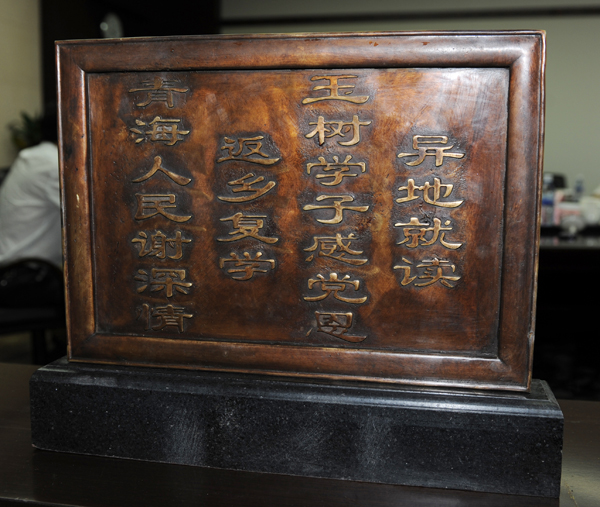 异地就读
玉树学子感党恩
返乡复学
青海人民谢深情